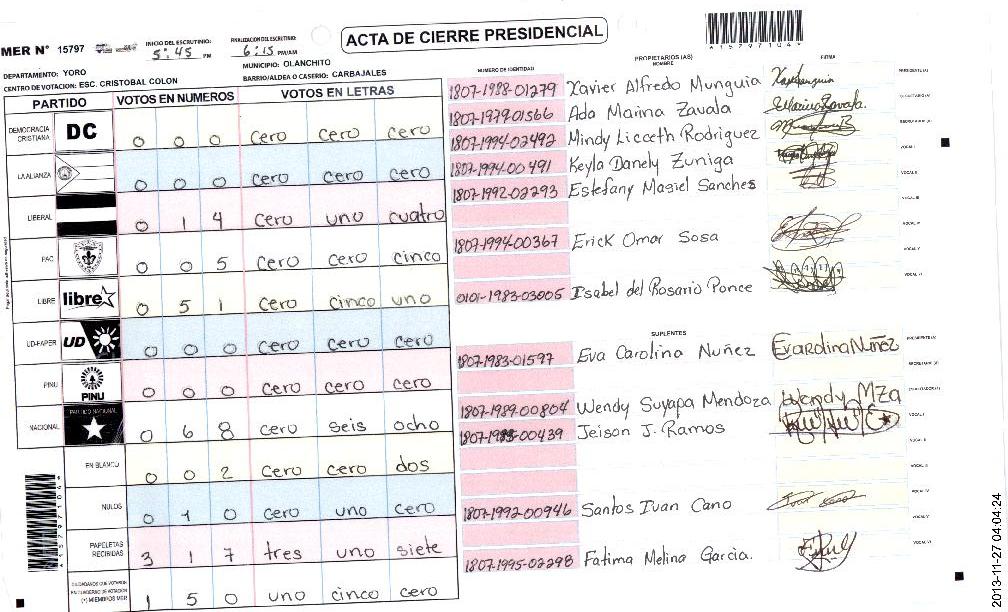 ACTA DE CIERRE PRESIDENCIAL
MER N° 15797
INICIO DEL ESCRUTINIO: 5:45 PM
FINALIZACION DEL ESCRUTINIO: 6:15 PM/AM
DEPARTAMENTO: YORO
MUNICIPIO: OLANCHITO
CENTRO DE VOTACION: ESC. CRISTOBAL COLON
BARRIO/ALDEA O CASERIO: CARBAJALES
PARTIDO VOTOS EN NUMEROS VOTOS EN LETRAS
DEMOCRACIA CRISTIANA DC 0 0 0 cero cero cero
LA ALIANZA 0 0 0 cero cero cero
LIBERAL 0 1 4 cero uno cuatro
PAC 0 0 5 cero cero cinco
LIBRE libre 0 5 1 cero cinco uno
UD-FAPER UD 0 0 0 cero cero cero
PINU PINU 0 0 0 cero cero cero
NACIONAL PARTIDO NACIONAL 0 6 8 cero seis ocho
EN BLANCO 0 0 2 cero cero dos
NULOS 0 1 0 cero uno cero
PAPELETAS RECIBIDAS 3 1 7 tres uno siete
CIUDADANOS QUE VOTARON EN CUADERNO DE VOTACION (+) MIEMBROS MER 1 5 0 uno cinco cero
NUMERO DE IDENTIDAD PROPIETARIOS (AS) NOMBRE FIRMA
1807-1988-01279 Xavier Alfredo Munguia PRESIDENTE (A)
1807-1979-01566 Ada Marina Zavala SECRETARIO (A)
1807-1994-02492 Mindy Licceth Rodriguez
1807-1994-00491 Keyla Danely Zuniga VOCAL I
1807-1992-02293 Estefany Masiel Sanches VOCAL II
VOCAL III
1807-1994-00367 Erick Omar Sosa VOCAL IV
VOCAL V
0101-1983-03005 Isabel del Rosario Ponce VOCAL VI
SUPLENTES
1807-1983-01597 Eva Carolina Nuñez Eva Carolina Nuñez PRESIDENTE (A)
SECRETARIO (A)
1807-1989-00804 Wendy Suyapa Mendoza Wendy MZa
1807-1988-00439 Jeison J. Ramos VOCAL I
VOCAL II
VOCAL III
1807-1992-00946 Santos Ivan Cano VOCAL IV
VOCAL V
1807-1995-02298 Fatima Melina Garcia. VOCAL VI
*157971049*
2013-11-27 04:04:24